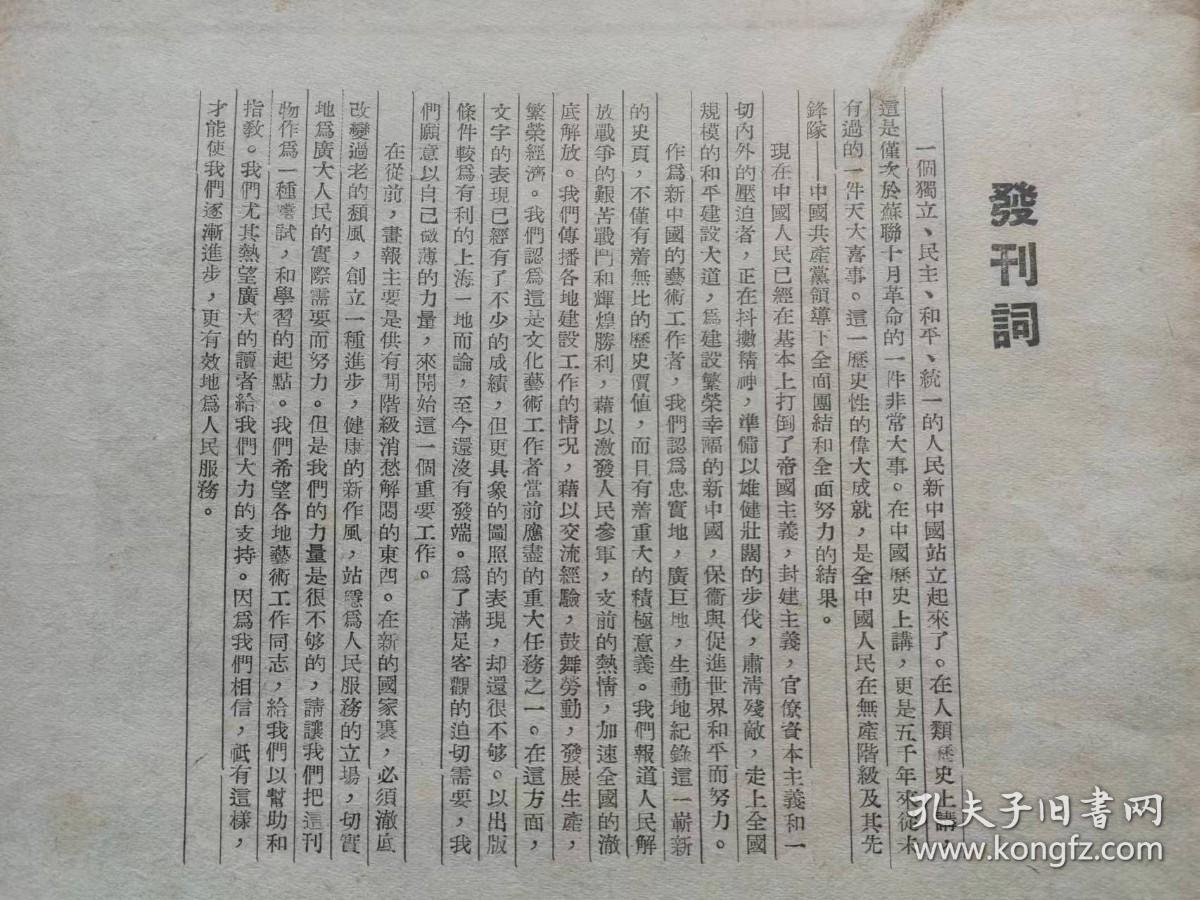 發刊詞
一個獨立、民主、和平、統一的人民新中國站立起來了。在人類歷史上講，
這是僅次於蘇聯十月革命的一件非常大事。在中國歷史上講，更是五千年來從未
有過的一件天大喜事。這一歷史性的偉大成就，是全中國人民在無產階級及其先
鋒隊——中國共產黨領導下全面團結和全面努力的結果。
現在中國人民已經在基本上打倒了帝國主義，封建主義，官僚資本主義和一
切內外的壓迫者，正在抖擻精神，準備以雄健壯闊的步伐，肅清殘敵，走上全國
規模的和平建設大道，爲建設繁榮幸福的新中國，保衞與促進世界和平而努力。
作爲新中國的藝術工作者，我們認爲忠實地，廣巨地，生動地紀錄這一嶄新
的史頁，不僅有着無比的歷史價值，而且有着重大的積極意義。我們報道人民解
放戰爭的艱苦戰鬥和輝煌勝利，藉以激發人民參軍，支前的熱情，加速全國的澈
底解放。我們傳播各地建設工作的情况，藉以交流經驗，鼓舞勞動，發展生產，
繁榮經濟。我們認爲這是文化藝術工作者當前應盡的重大任務之一。在這方面，
文字的表現已經有了不少的成績，但更具象的圖照的表現，却還很不够。以出版
條件較爲有利的上海一地而論，至今還沒有發端。爲了滿足客觀的迫切需要，我
們願意以自己微薄的力量，來開始這一個重要工作。
在從前，畫報主要是供有閒階級消愁解悶的東西。在新的國家裏，必須澈底
改變過老的頹風，創立一種進步，健康的新作風，站穩爲人民服務的立場，切實
地爲廣大人民的實際需要而努力。但是我們的力量是很不够的，請讓我們把這刊
物作爲一種嘗試，和學習的起點。我們希望各地藝術工作同志，給我們以幫助和
指教。我們尤其熱望廣大的讀者給我們大力的支持。因爲我們相信，祇有這樣，
才能使我們逐漸進步，更有效地爲人民服務。
孔夫子旧书网
www.kongfz.com